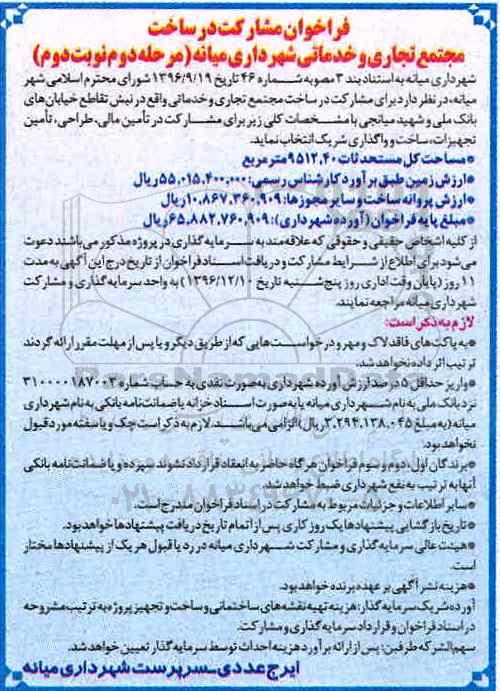 فراخوان مشارکت در ساخت
مجتمع تجاری و خدماتی شهرداری میانه (مرحله دوم نوبت دوم)
شهرداری میانه به استناد بند ۳ مصوبه شماره ۴۶ تاریخ ۱۳۹۶/۹/۱۹ شورای محترم اسلامی شهر
میانه، در نظر دارد برای مشارکت در ساخت مجتمع تجاری و خدماتی واقع در نبش تقاطع خیابان‌های
بانک ملی و شهید میانجی با مشخصات کلی زیر برای مشارکت در تأمین مالی، طراحی، تأمین
تجهیزات، ساخت و واگذاری شریک انتخاب نماید.
*مساحت کل مستحدثات ۹۵۱۲,۴۰ متر مربع
*ارزش زمین طبق برآورد کارشناس رسمی: ۵۵,۰۱۵,۴۰۰,۰۰۰ ریال
*ارزش پروانه ساخت و سایر مجوزها: ۱۰,۸۶۷,۳۶۰,۹۰۹ ریال
*مبلغ پایه فراخوان (آورده شهرداری): ۶۵,۸۸۲,۷۶۰,۹۰۹ ریال
از کلیه اشخاص حقیقی و حقوقی که علاقه‌مند به سرمایه گذاری در پروژه مذکور می‌باشند دعوت
می‌شود برای اطلاع از شرایط مشارکت و دریافت اسناد فراخوان از تاریخ درج این آگهی به مدت
۱۱ روز (پایان وقت اداری روز پنج‌شنبه تاریخ ۱۳۹۶/۱۲/۱۰) به واحد سرمایه گذاری و مشارکت
شهرداری میانه مراجعه نمایند.
لازم به ذکر است:
*به پاکت‌های فاقد لاک و مهر و درخواست‌هایی که از طریق دیگر و یا پس از مهلت مقرر ارائه گردند
ترتیب اثر داده نخواهد شد.
*واریز حداقل ۵ درصد ارزش آورده شهرداری به‌صورت نقدی به حساب شماره ۳۱۰۰۰۰۱۸۷۰۰۳
نزد بانک ملی به نام شهرداری میانه یا به‌صورت اسناد خزانه یا ضمانت‌نامه بانکی به نام شهرداری
میانه (به مبلغ ۳,۲۹۴,۱۳۸,۰۴۵ ریال) الزامی می‌باشد. لازم به ذکر است چک و یا سفته مورد قبول
نخواهد بود.
*برندگان اول، دوم و سوم فراخوان هرگاه حاضر به انعقاد قرارداد نشوند سپرده و یا ضمانت‌نامه بانکی
آنها به ترتیب به نفع شهرداری ضبط خواهد شد.
*سایر اطلاعات و جزئیات مربوط به مشارکت در اسناد فراخوان مندرج است.
*تاریخ بازگشایی پیشنهادها یک روز کاری پس از اتمام تاریخ دریافت پیشنهادها خواهد بود.
*هیئت عالی سرمایه گذاری و مشارکت شهرداری میانه در رد یا قبول هر یک از پیشنهادها مختار
است.
*هزینه نشر آگهی بر عهده برنده خواهد بود.
آورده شریک سرمایه گذار: هزینه تهیه نقشه‌های ساختمانی و ساخت و تجهیز پروژه به ترتیب مشروحه
در اسناد فراخوان و قرارداد سرمایه گذاری و مشارکت.
سهم‌الشرکه طرفین: پس از ارائه برآورد هزینه احداث توسط سرمایه گذار تعیین خواهد شد.
ایرج عددی ـ سرپرست شهرداری میانه